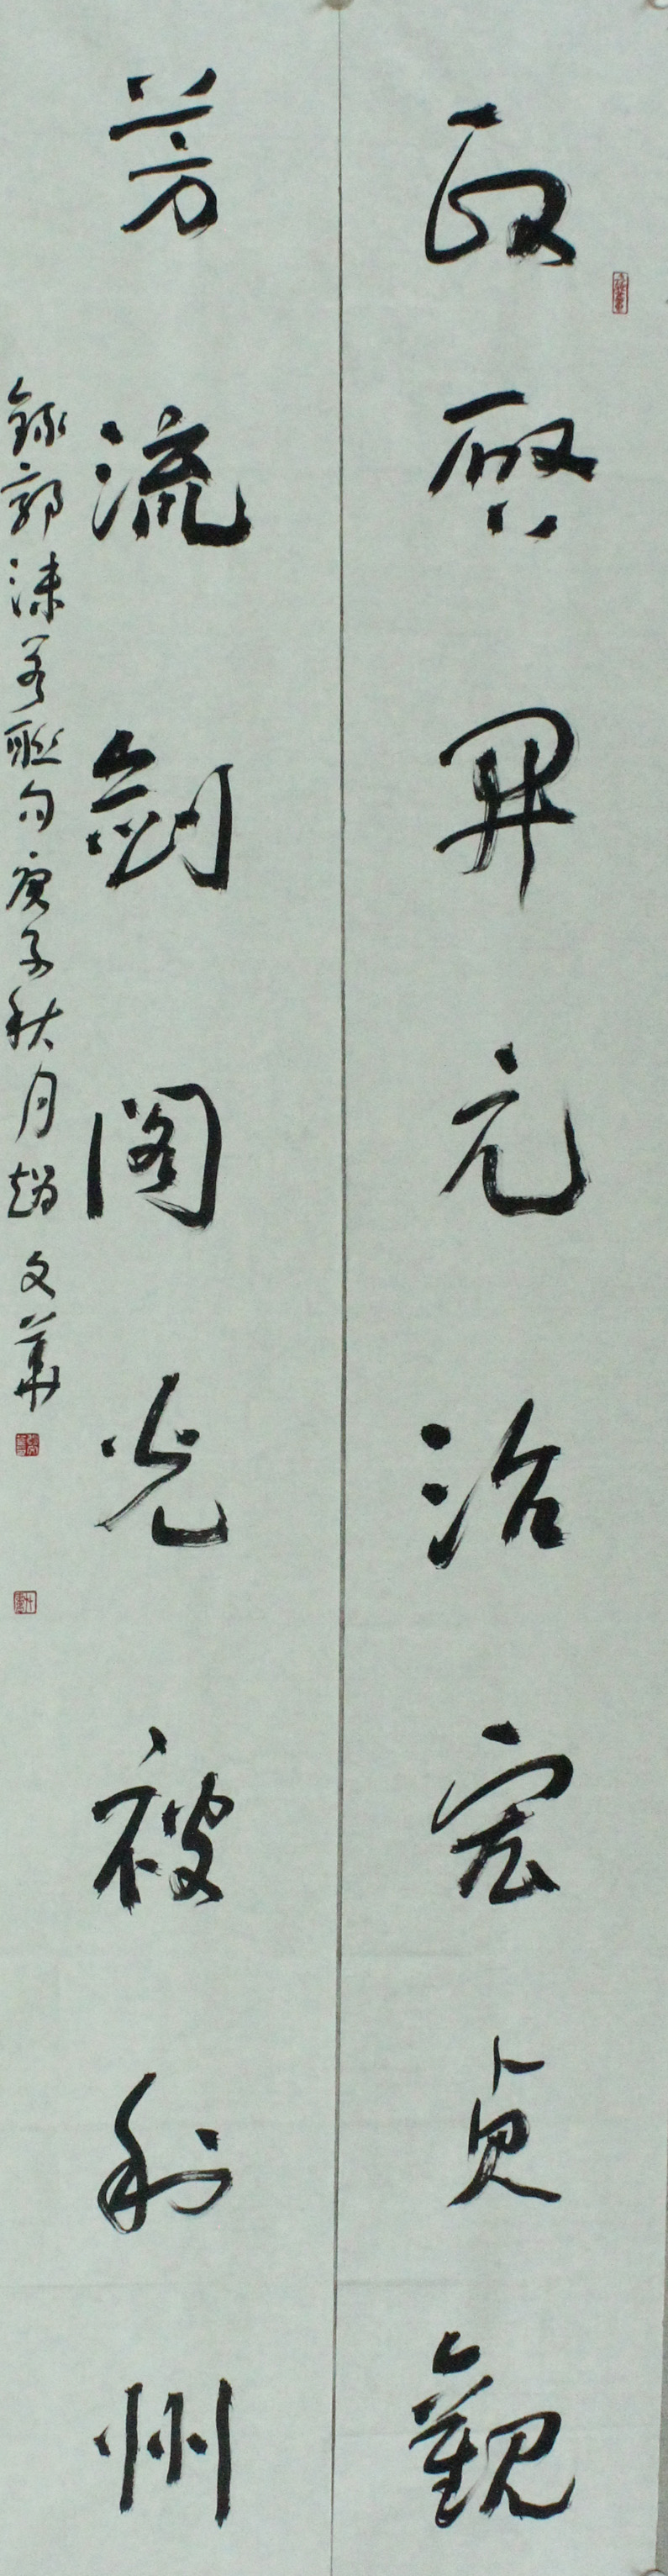 政啓開元治宏貞觀
芳流劍閣光被利州
錄郭沫若聯句庚子秋月趙文華